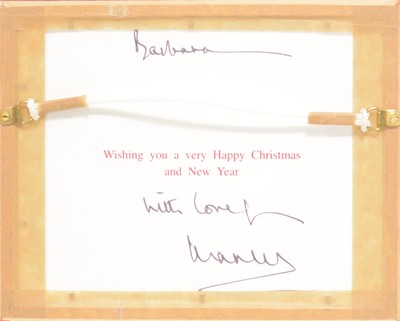 Barbara
Wishing you a very Happy Christmas
and New Year
with love
Charles